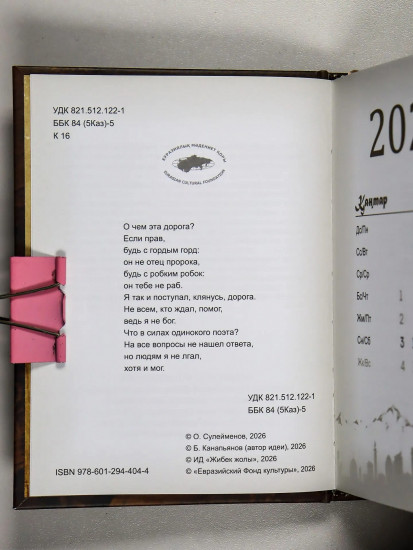 УДК 821.512.122-1
ББК 84 (5Каз)-5
К 16
ЕВРАЗИЯЛЫҚ МӘДЕНИЕТ ҚОРЫ
EURASIAN CULTURAL FOUNDATION
О чем эта дорога?
Если прав,
будь с гордым горд:
он не отец пророка,
будь с робким робок:
он тебе не раб.
Я так и поступал, клянусь, дорога.
Не всем, кто ждал, помог,
ведь я не бог.
Что в силах одинокого поэта?
На все вопросы не нашел ответа,
но людям я не лгал,
хотя и мог.
УДК 821.512.122-1
ББК 84 (5Каз)-5
© О. Сулейменов, 2026
© Б. Канапьянов (автор идеи), 2026
© ИД «Жибек жолы», 2026
ISBN 978-601-294-404-4
© «Евразийский Фонд культуры», 2026
202
Қаңтар
Дс/Пн
Сс/Вт
Ср/Ср
Бс/Чт 1
Жм/Пт 2
Сн/Сб 3
Жк/Вс 4